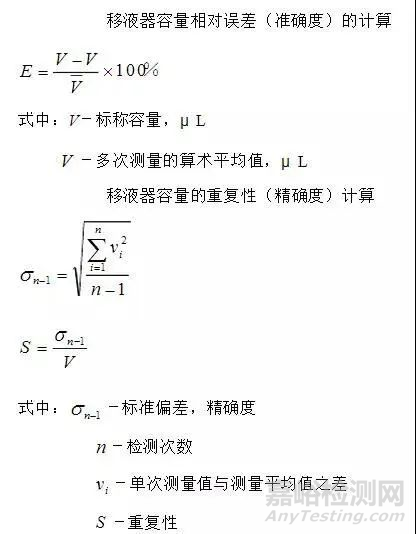 移液器容量相对误差（准确度）的计算
E = (V − V) / V̅ ×100%
式中：V−标称容量，μ L
V −多次测量的算术平均值，μ L
移液器容量的重复性（精确度）计算
σₙ₋₁ = √(∑ᵢ₌₁ⁿ vᵢ² / (n − 1))
S = σₙ₋₁ / V
式中：σₙ₋₁ −标准偏差，精确度
n −检测次数
vᵢ −单次测量值与测量平均值之差
S −重复性
嘉峪检测网
AnyTesting.com